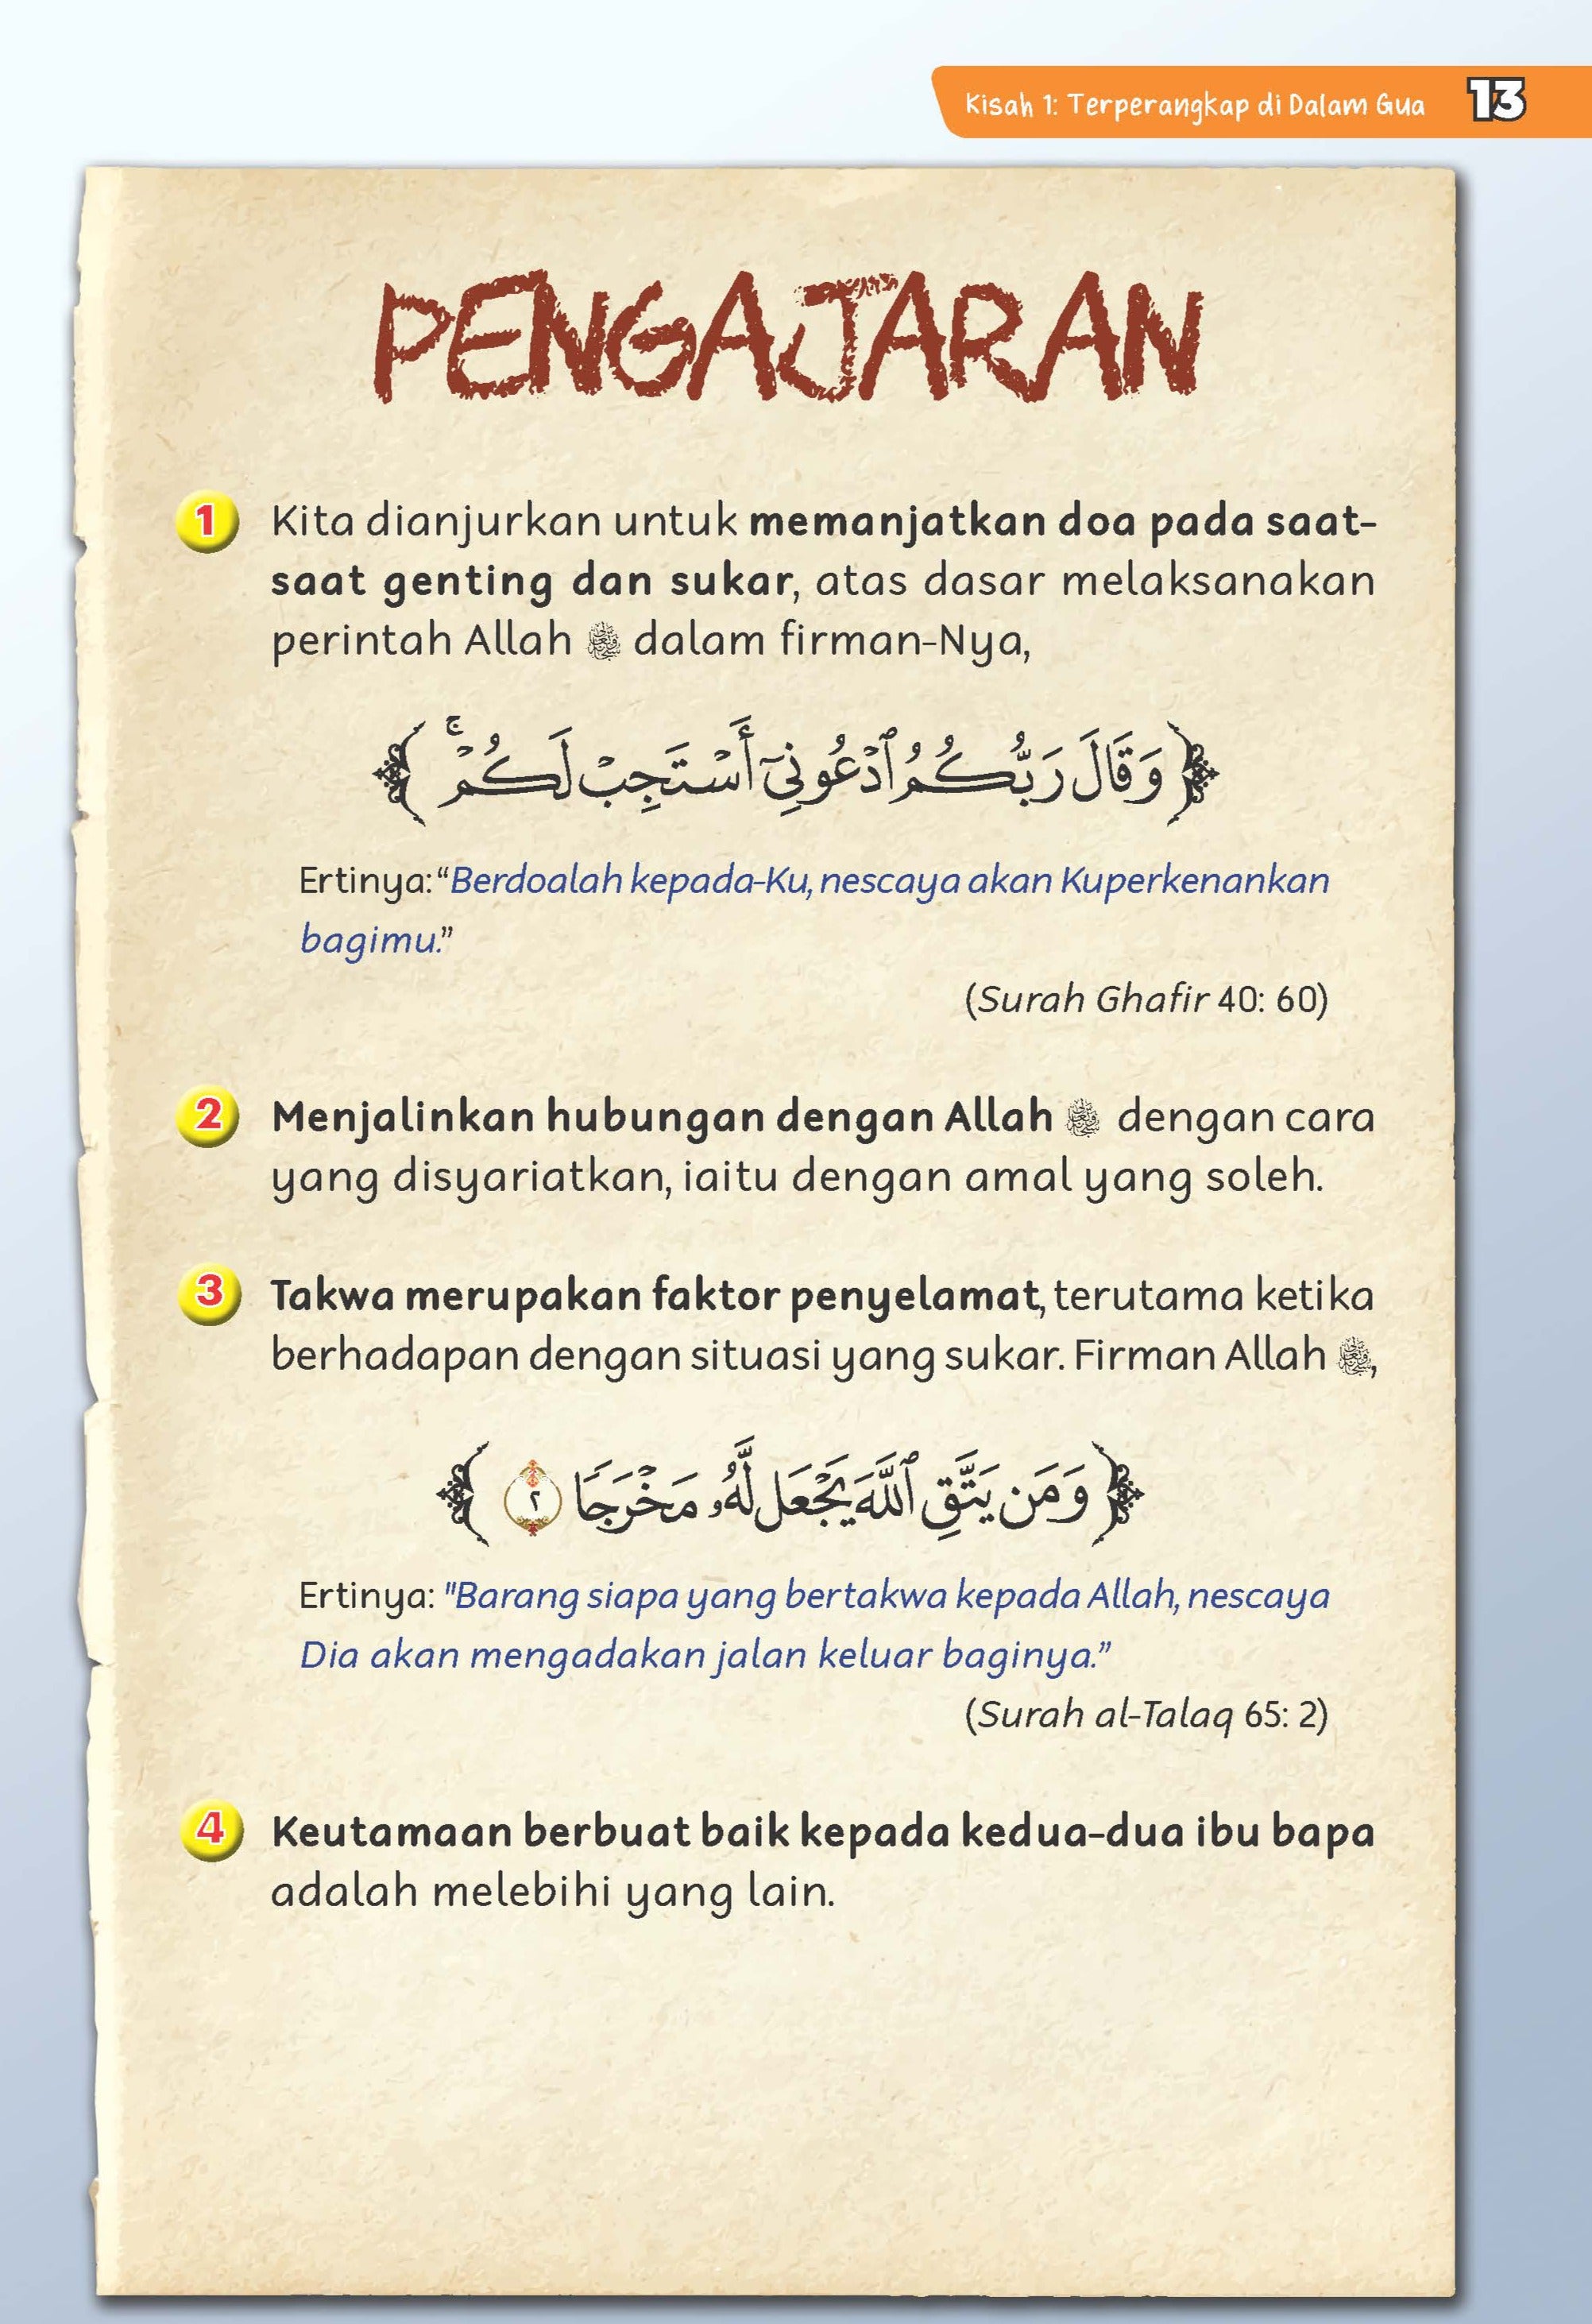 Kisah 1: Terperangkap di Dalam Gua 13
PENGAJARAN
1 Kita dianjurkan untuk memanjatkan doa pada saat-
saat genting dan sukar, atas dasar melaksanakan
perintah Allah ﷻ dalam firman-Nya,
﴿وَقَالَ رَبُّكُمُ ٱدْعُونِىٓ أَسْتَجِبْ لَكُمْ ۚ﴾
Ertinya: “Berdoalah kepada-Ku, nescaya akan Kuperkenankan
bagimu.”
(Surah Ghafir 40: 60)
2 Menjalinkan hubungan dengan Allah ﷻ dengan cara
yang disyariatkan, iaitu dengan amal yang soleh.
3 Takwa merupakan faktor penyelamat, terutama ketika
berhadapan dengan situasi yang sukar. Firman Allah ﷻ,
﴿وَمَن يَتَّقِ ٱللَّهَ يَجْعَل لَّهُۥ مَخْرَجًا ٢﴾
Ertinya: "Barang siapa yang bertakwa kepada Allah, nescaya
Dia akan mengadakan jalan keluar baginya.”
(Surah al-Talaq 65: 2)
4 Keutamaan berbuat baik kepada kedua-dua ibu bapa
adalah melebihi yang lain.